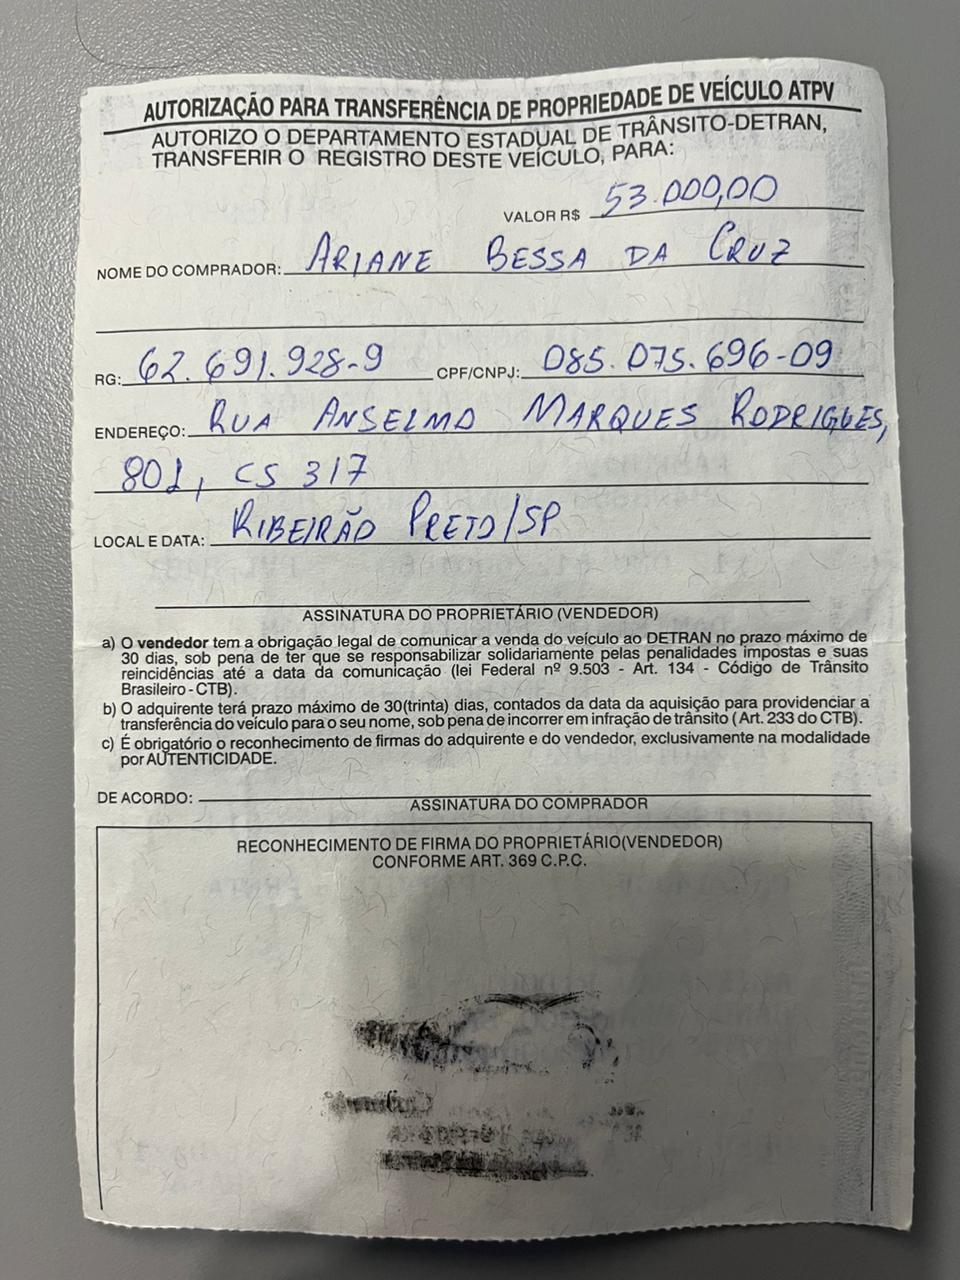 AUTORIZAÇÃO PARA TRANSFERÊNCIA DE PROPRIEDADE DE VEÍCULO ATPV
AUTORIZO O DEPARTAMENTO ESTADUAL DE TRÂNSITO-DETRAN,
TRANSFERIR O REGISTRO DESTE VEÍCULO, PARA:
VALOR R$ 53.000,00
NOME DO COMPRADOR: ARIANE BESSA DA CRUZ
RG: 62.691.928-9 CPF/CNPJ: 085.075.696-09
ENDEREÇO: RUA ANSELMO MARQUES RODRIGUES,
801, CS 317
LOCAL E DATA: RIBEIRÃO PRETO/SP
ASSINATURA DO PROPRIETÁRIO (VENDEDOR)
a) O vendedor tem a obrigação legal de comunicar a venda do veículo ao DETRAN no prazo máximo de
30 dias, sob pena de ter que se responsabilizar solidariamente pelas penalidades impostas e suas
reincidências até a data da comunicação (lei Federal nº 9.503 - Art. 134 - Código de Trânsito
Brasileiro - CTB).
b) O adquirente terá prazo máximo de 30(trinta) dias, contados da data da aquisição para providenciar a
transferência do veículo para o seu nome, sob pena de incorrer em infração de trânsito (Art. 233 do CTB).
c) É obrigatório o reconhecimento de firmas do adquirente e do vendedor, exclusivamente na modalidade
por AUTENTICIDADE.
DE ACORDO:
ASSINATURA DO COMPRADOR
RECONHECIMENTO DE FIRMA DO PROPRIETÁRIO(VENDEDOR)
CONFORME ART. 369 C.P.C.